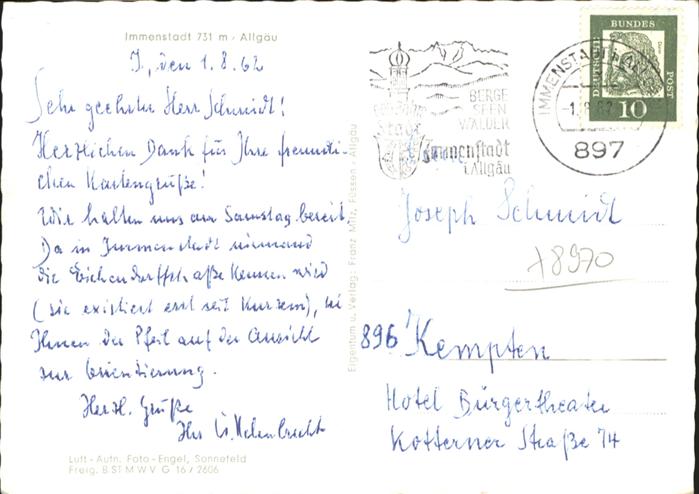 Immenstadt 731 m · Allgäu
I., den 1.8.62
Sehr geehrter Herr Schmidt!
Herzlichen Dank für Ihre freundli-
chen Kartengrüße!
Wir halten uns am Samstag bereit.
Da in Immenstadt niemand
die Eichendorffstraße kennen wird
(sie existiert erst seit kurzem), sei
Ihnen der Pfeil auf der Ansicht
zur Orientierung.
Herzl. Grüße
Ihr
Luft-Aufn. Foto-Engel, Sonnefeld
Freig. B ST M W V G 16/2606
Eigentum u. Verlag: Franz Milz, Füssen-Allgäu
BERGE
SEEN
WÄLDER
Immenstadt
i. Allgäu
IMMENSTADT (ALLGÄU)
-1.8.62
897
DEUTSCHE BUNDESPOST
10
Joseph Schmidt
+8970
896 Kempten
Hotel Bürgertheater
Kotterner Straße 74